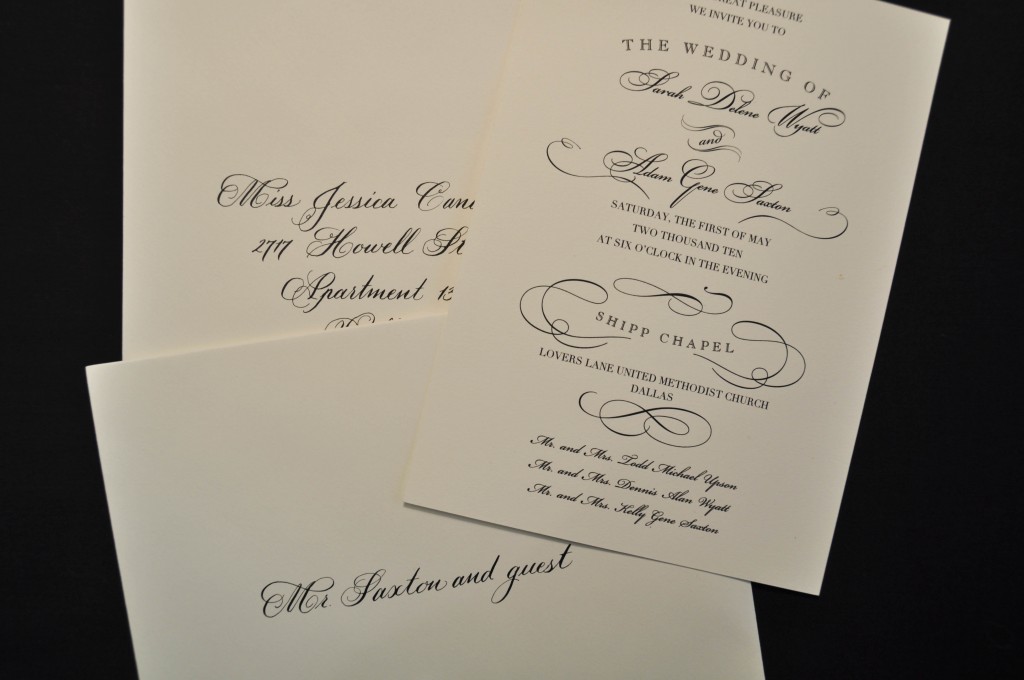 PLEASURE
WE INVITE YOU TO
THE WEDDING OF
Sarah Delene Wyatt
and
Adam Gene Saxton
SATURDAY, THE FIRST OF MAY
TWO THOUSAND TEN
AT SIX O'CLOCK IN THE EVENING
SHIPP CHAPEL
LOVERS LANE UNITED METHODIST CHURCH
DALLAS
Mr. and Mrs. Todd Michael Upson
Mr. and Mrs. Dennis Alan Wyatt
Mr. and Mrs. Kelly Gene Saxton
Miss Jessica
2717 Howell St
Apartment 13
Mr. Saxton and guest